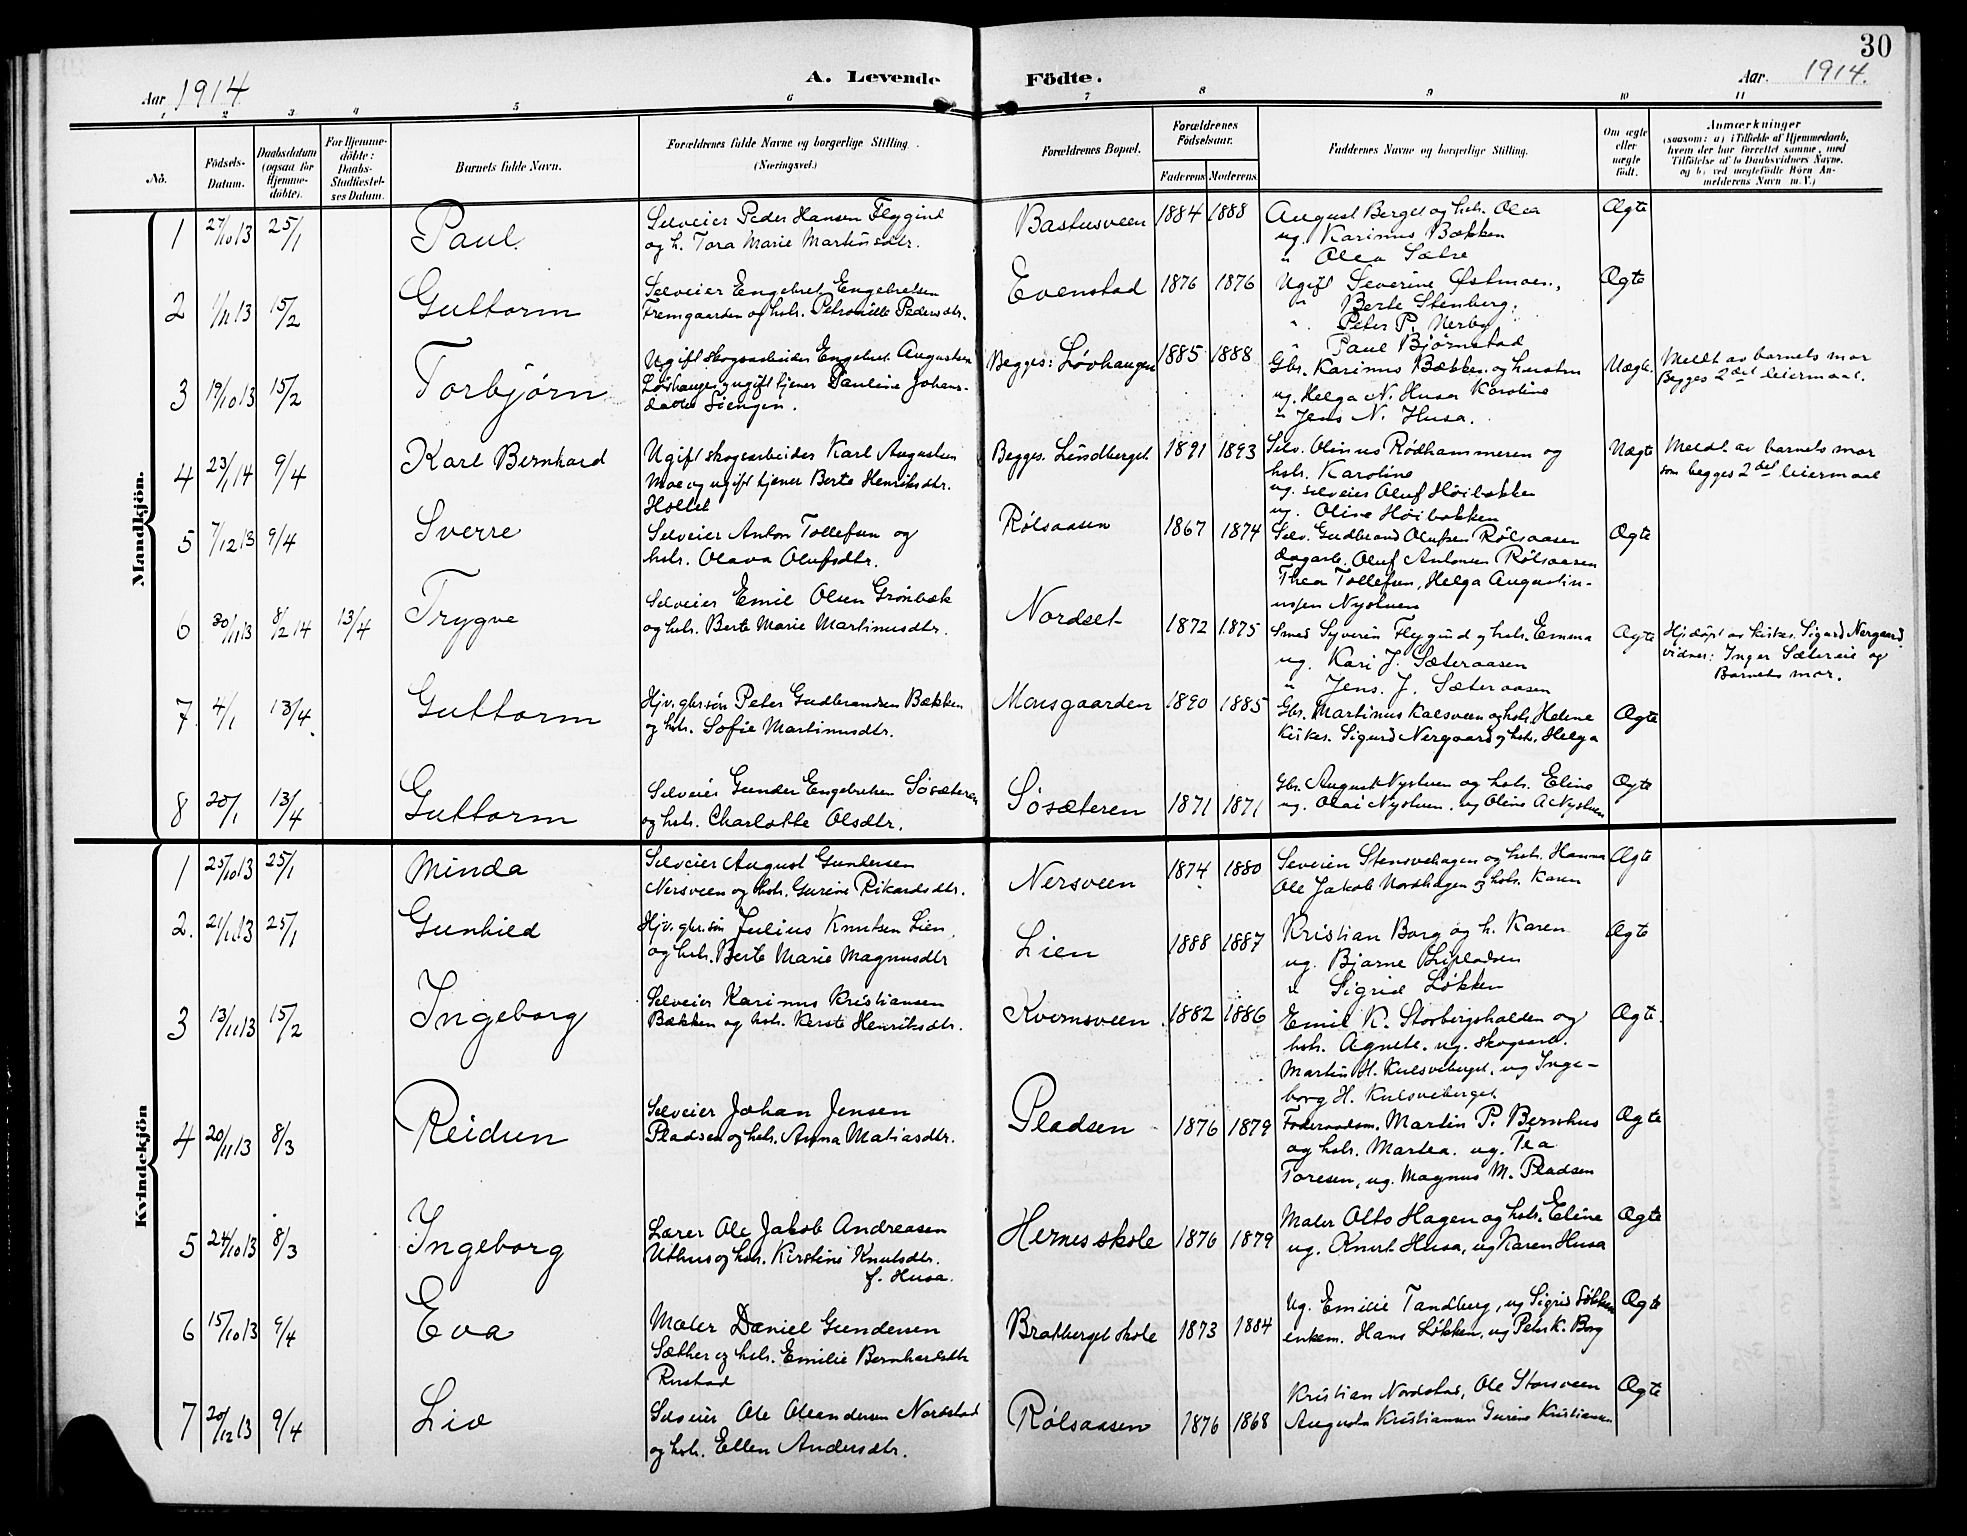 30
A. Levende Födte.
Aar 1914
Aar. 1914.
1 2 3 4 5 6 7 8 9 10 11
No.
Födsels-Datum.
Daabsdatum (ogsaa for Hjemme-döbte).
For Hjemme-döbte: Daabs-Stadfæstel-ses Datum.
Barnets fulde Navn.
Forældrenes fulde Navne og borgerlige Stilling.
(Næringsvei.)
Forældrenes Bopæl.
Forældrenes Födselsaar.
Faderens Moderens
Faddernes Navne og borgerlige Stilling.
Om ægte eller uægte födt.
Anmærkninger
(saasom: a) i Tilfælde af Hjemmedaab,
hvem der har forrettet samme, med
Tilföielse af to Daabsvidners Navne,
og b) ved uægtefödte Börn An-
melderens Navn m. V.)
Mandkjön.
1 27/10 13 25/1 Paul Selveier Peder Hansen Flygind
og h. Tora Marie Martinsdtr.
Bastusveen 1884 1888 August Berget og hstr. Olea
ug. Karinus Bækken
" Olea Sætre
Ægte
2 1/11 13 15/2 Guttorm Selveier Engebret Engebretsen
Fremgaarden og hstr. Petronille Pedersdtr.
Evenstad 1876 1876 Ugift Severine Østmoen,
" Berte Stenberg.
" Peter P. Nerby
" Paul Bjørnstad
Ægte
3 19/10 13 15/2 Torbjørn Ugift skogsarbeider Engebret Augustsen
Løvhaugen og ugift tjener Pauline Johans-
datter Siengen.
Begges: Løvhaugen 1885 1888 Gbr. Karinus Bækken og hustru
ug. Helga N. Husa Karoline
" Jens N. Husa.
Uægte. Meldt av barnets mor
Begges 2det leiermaal.
4 23/1 14 9/4 Karl Bernhard Ugift skogsarbeider Karl Augustsen
Moe og ugift tjener Berte Henriksdtr.
Holtet
Begges. Lindberget 1891 1893 Selv. Olinus Rødhammeren og
hstr. Karoline
ug. selveier Oluf Høibakken
ug. Oline Høibakken
Uægte Meldt av barnets mor
som begges 2det leiermaal
5 7/12 13 9/4 Sverre Selveier Anton Tollefsen og
hstr. Olava Olufsdtr.
Rølsaasen 1867 1874 Selv. Gudbrand Olufsen Rølsaasen
dagarb. Oluf Antonsen Rølsaasen
Thea Tollefsen, Helga Augustin-
ussen Nystuen
Ægte
6 30/11 13 8/2 14 13/4 Trygve Selveier Emil Olsen Grønbæk
og hstr. Berte Marie Martinusdtr.
Nordset 1872 1875 Smed Syverin Flygind og hstr. Emma
ug. Kari J. Sæteraasen
" Jens. J. Sæteraasen
Ægte Hj.døpt av kirkes. Sigurd Nergaard
vidner: Inger Sætereie og
Barnets mor.
7 4/1 13/4 Guttorm Hjv. gbrsøn Peter Gudbrandsen Bækken
og hstr. Sofie Martinusdtr.
Monsgaarden 1890 1885 Gbr. Martinus Kalsveen og hstr. Helene
Kirkes. Sigurd Nergaard og hstr. Helga
Ægte
8 20/1 13/4 Guttorm Selveier Gunder Engebretsen Søsæteren
og hstr. Charlotte Olsdtr.
Søsæteren 1871 1871 Gbr. August Nystuen og hstr. Eline
ug. Olai Nystuen, ug Oline A Nystuen
Ægte
Kvindekjön
1 25/10 13 25/1 Minda Selveier August Gundersen
Nersveen og hstr. Gurine Rikardsdtr.
Nersveen 1874 1880 Severin Stensvehagen og hstr. Hanna
Ole Jakob Nordhagen og hstr. Karen
Ægte
2. 21/11 13 25/1 Gunhild Hjv. gbr.søn Julius Knutsen Lien
og hstr. Berte Marie Magnusdtr
Lien 1888 1887 Kristian Borg og h. Karen
ug. Bjarne
" Sigrid Løkken
Ægte
3 13/11 13 15/2 Ingeborg Selveier Karinus Kristiansen
Bækken og hstr. Kersti Henriksdtr.
Kvernsveen 1882 1886 Emil K. Storbergshalden og
hstr. Agnete. ug. skogsarb.
Martin H. Kulsveberget, ug Inge-
borg H. Kulsveberget
Ægte.
4 20/11 13 8/3 Reidun Selveier Johan Jensen
Pladsen og hstr. Anna Matiasdtr.
Pladsen 1876 1879 Føderaadsm. Martin P. Bernhus
og hstr. Martea. ug. Tea
Toresen, ug. Magnus M. Pladsen
Ægte
5 24/10 13 8/3 Ingeborg Lærer Ole Jakob Andreasen
Uthus og hstr. Kirstine Knutsdtr.
f. Husa.
Hernes skole 1876 1879 Maler Otto Hagen og hstr. Eline
ug. Knut Husa, ug Karen Husa
Ægte
6 15/10 13 9/4 Eva Maler Daniel Gundersen
Sæther og hstr. Emilie Bernhardsdtr
Rustad
Bratberget skole 1873 1884 Ug. Emilie Tandberg, ug Sigrid Løkken
enkem. Hans Løkken, ug Peter K. Borg
Ægte
7 20/12 13 9/4 Liv Selveier Ole Oleandersen Nordstad
og hstr. Ellen Andersdtr.
Rølsaasen 1876 1868 Kristian Nordstad, Ole Storsveen
Augusta Kristiansen Gurine Kristiansen
Ægte